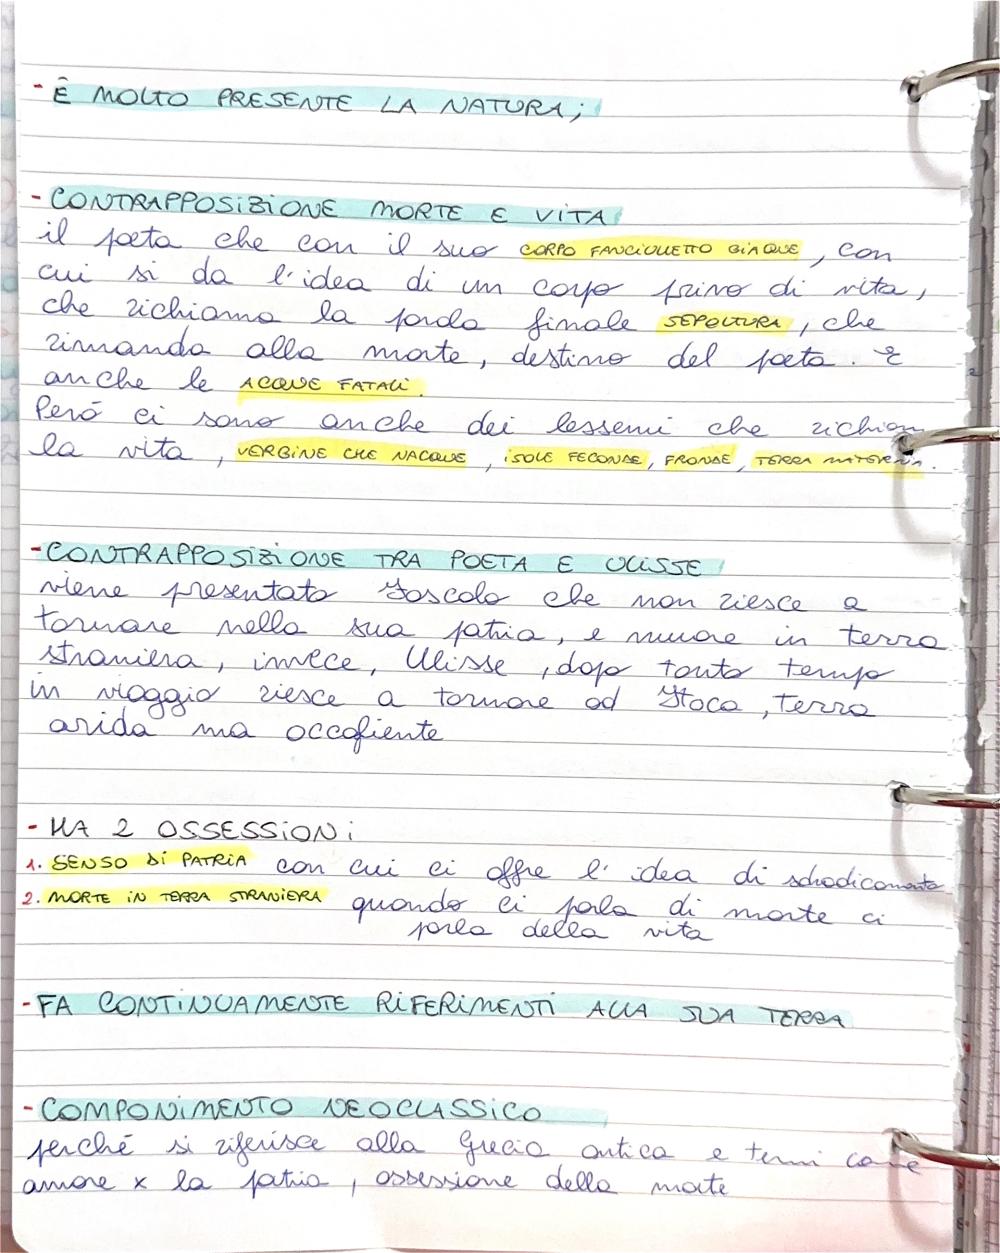 - È MOLTO PRESENTE LA NATURA;
- CONTRAPPOSIZIONE MORTE E VITA
il poeta che con il suo CORPO FANCIULLETTO GIAQUE, con
cui si da l'idea di un corpo privo di vita,
che richiama la parola finale SEPOLTURA, che
rimanda alla morte, destino del poeta. E
anche le ACQUE FATALI.
Però ci sono anche dei lessemi che richiam
la vita, VERGINE CHE NACQUE, ISOLE FECONDE, FRONDE, TERRA MATERNA.
- CONTRAPPOSIZIONE TRA POETA E ULISSE
viene presentato Foscolo che non riesce a
tornare nella sua patria, e muore in terra
straniera, invece, Ulisse, dopo tanto tempo
in viaggio riesce a tornare ad Itaca, terra
arida ma accogliente
- HA 2 OSSESSIONI
1. SENSO DI PATRIA con cui ci offre l'idea di sradicamento
2. MORTE IN TERRA STRANIERA quando ci parla di morte ci
parla della vita
- FA CONTINUAMENTE RIFERIMENTI ALLA SUA TERRA
- COMPONIMENTO NEOCLASSICO
perché si riferisce alla Grecia antica e temi come
amore x la patria, ossessione della morte